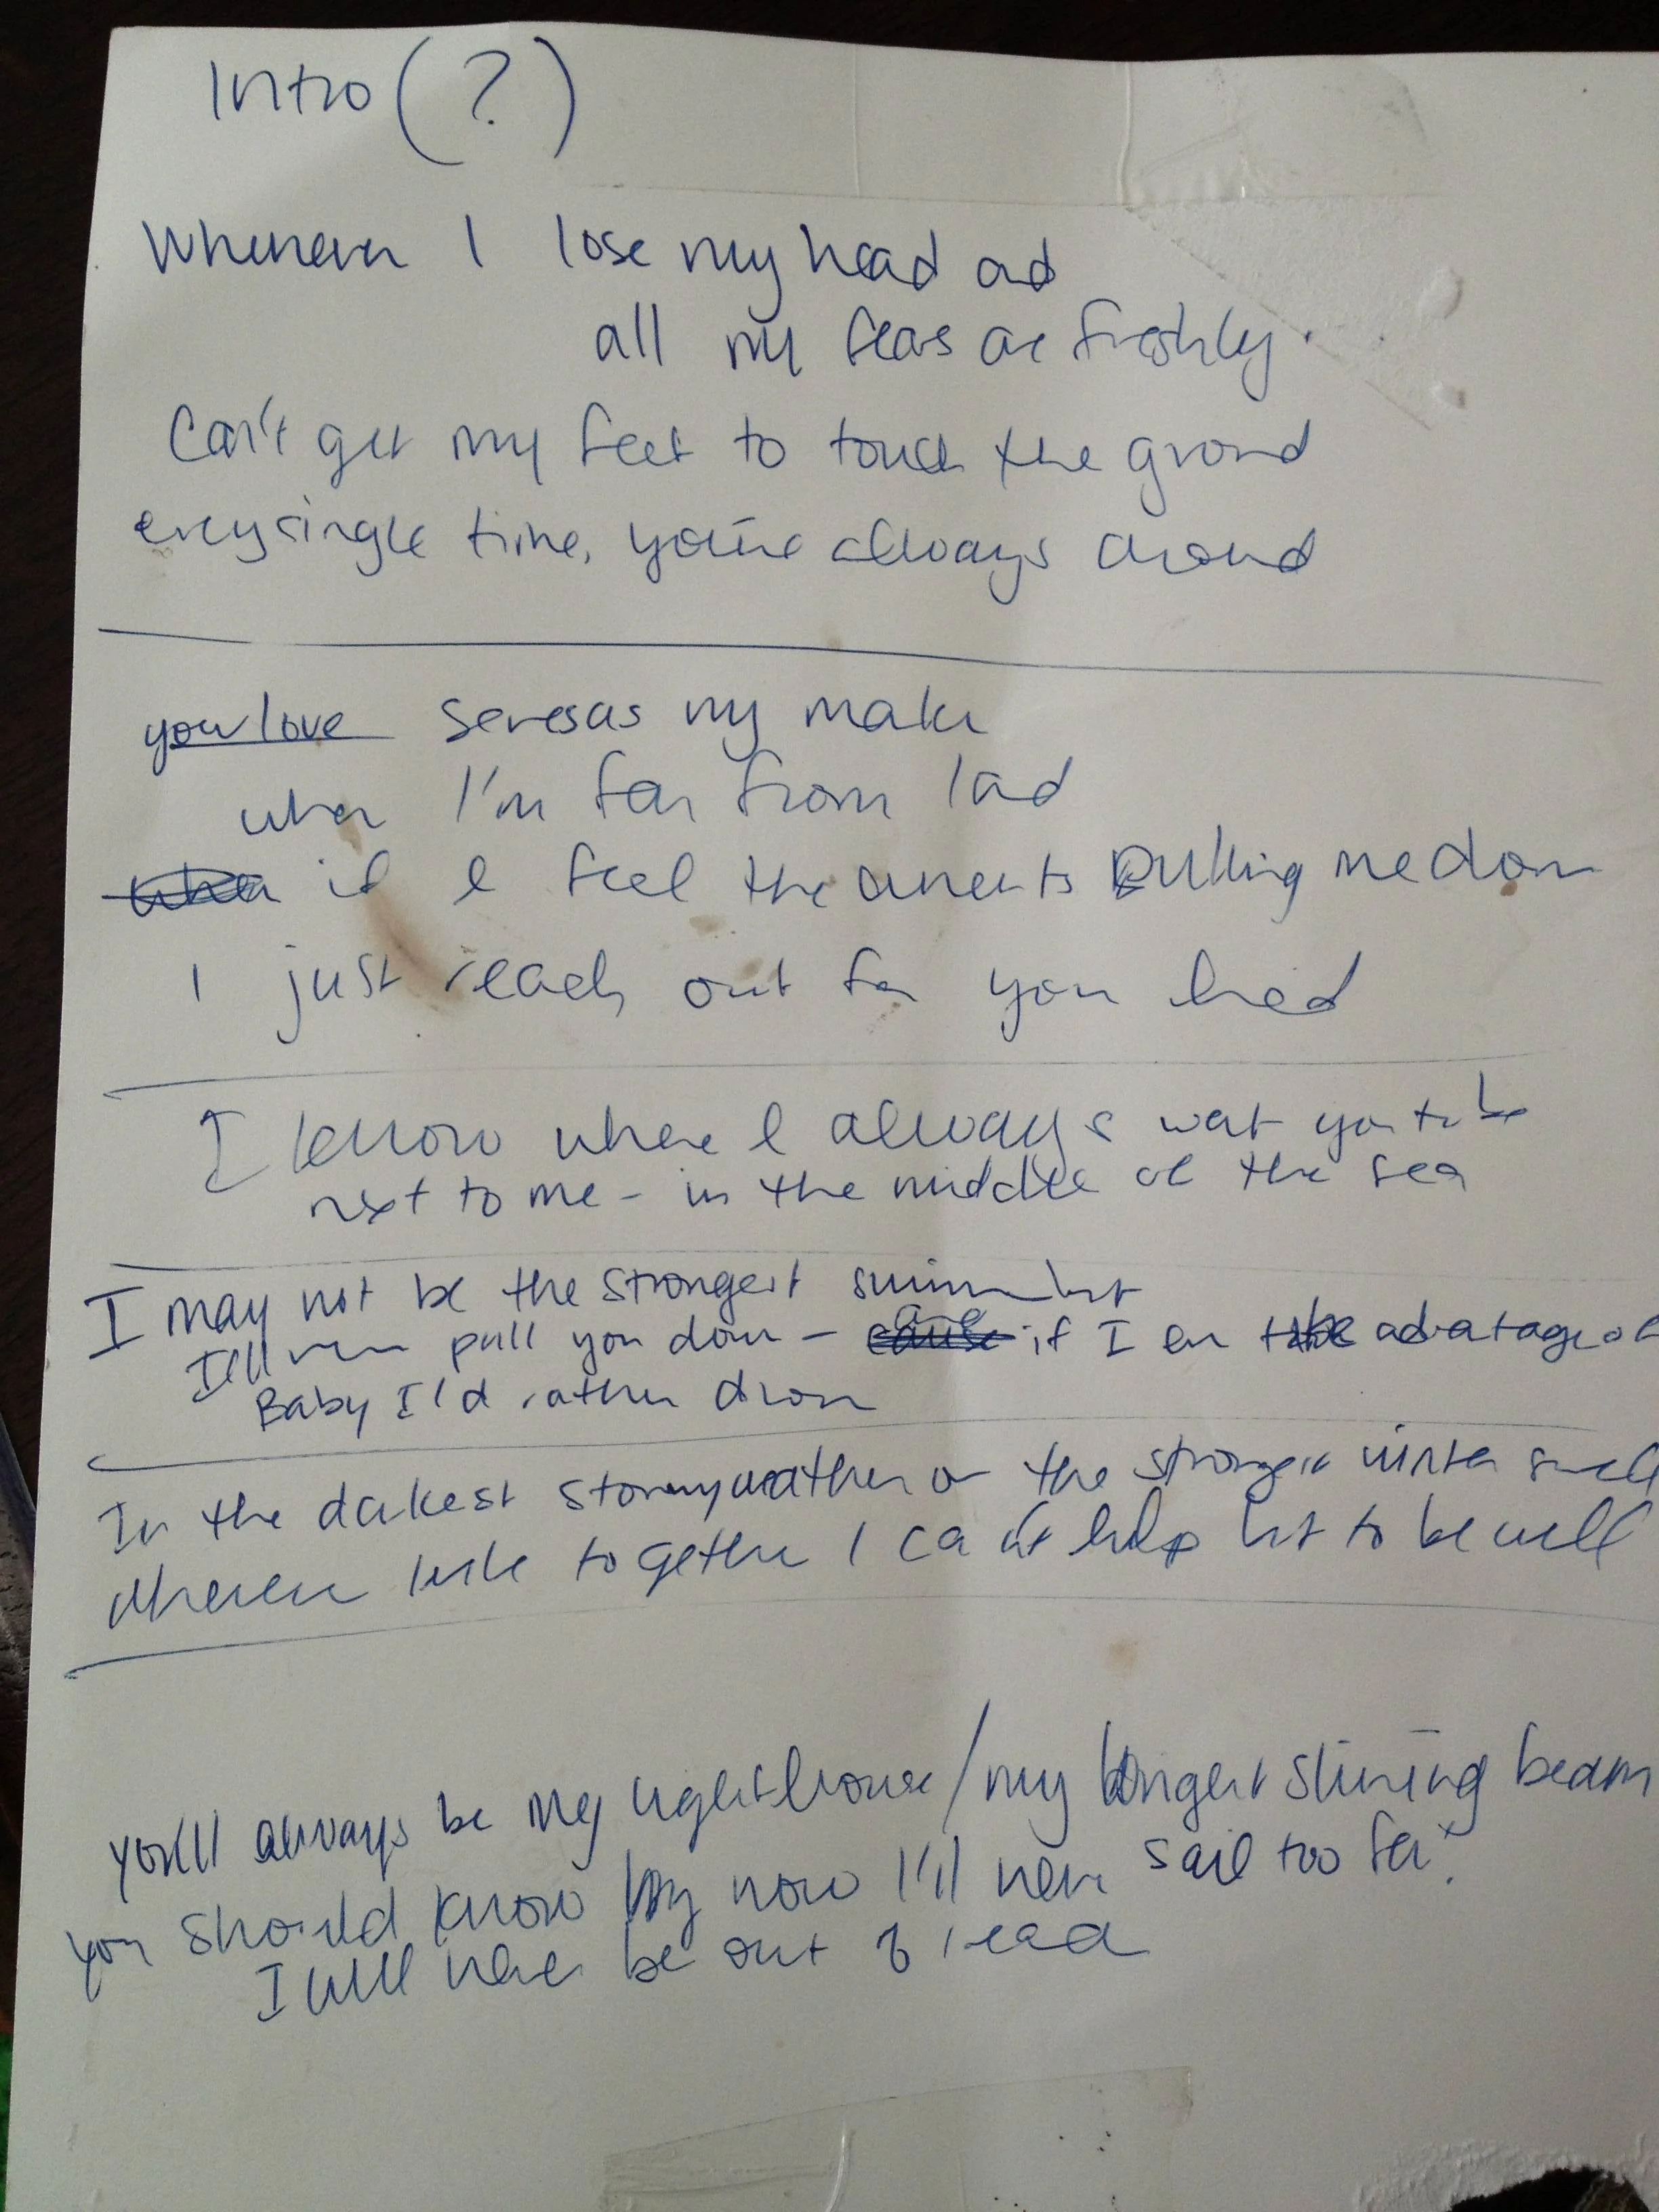 Intro (?)
Whenever I lose my head and
all my fears are freshly.
Can't get my feet to touch the ground
every single time, you're always around
your love serves as my
when I'm far from land
when if I feel the currents pulling me down
I just reach out for your hand
I know where I always want you to be
next to me - in the middle of the sea
I may not be the strongest swimmer but
I'll never pull you down - cause if I ever take advantage of
Baby I'd rather drown
In the darkest stormy weather or the strongest winter
Whenever we're together I can't help but to be well
you'll always be my lighthouse / my longest shining beam
you should know by now I'll never sail too far
I will never be out of